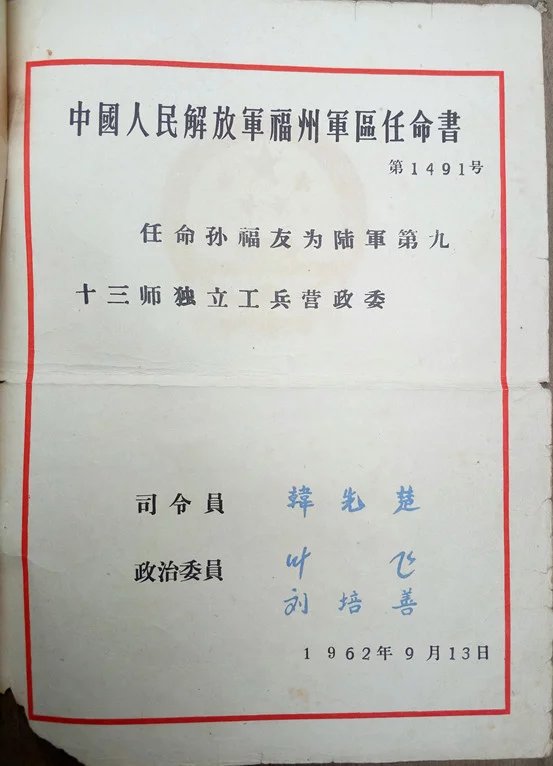 中國人民解放軍福州軍區任命書
第1491号
任命孙福友为陆軍第九
十三师独立工兵营政委
司令員 韓先楚
政治委員 叶飞
刘培善
1962年9月13日